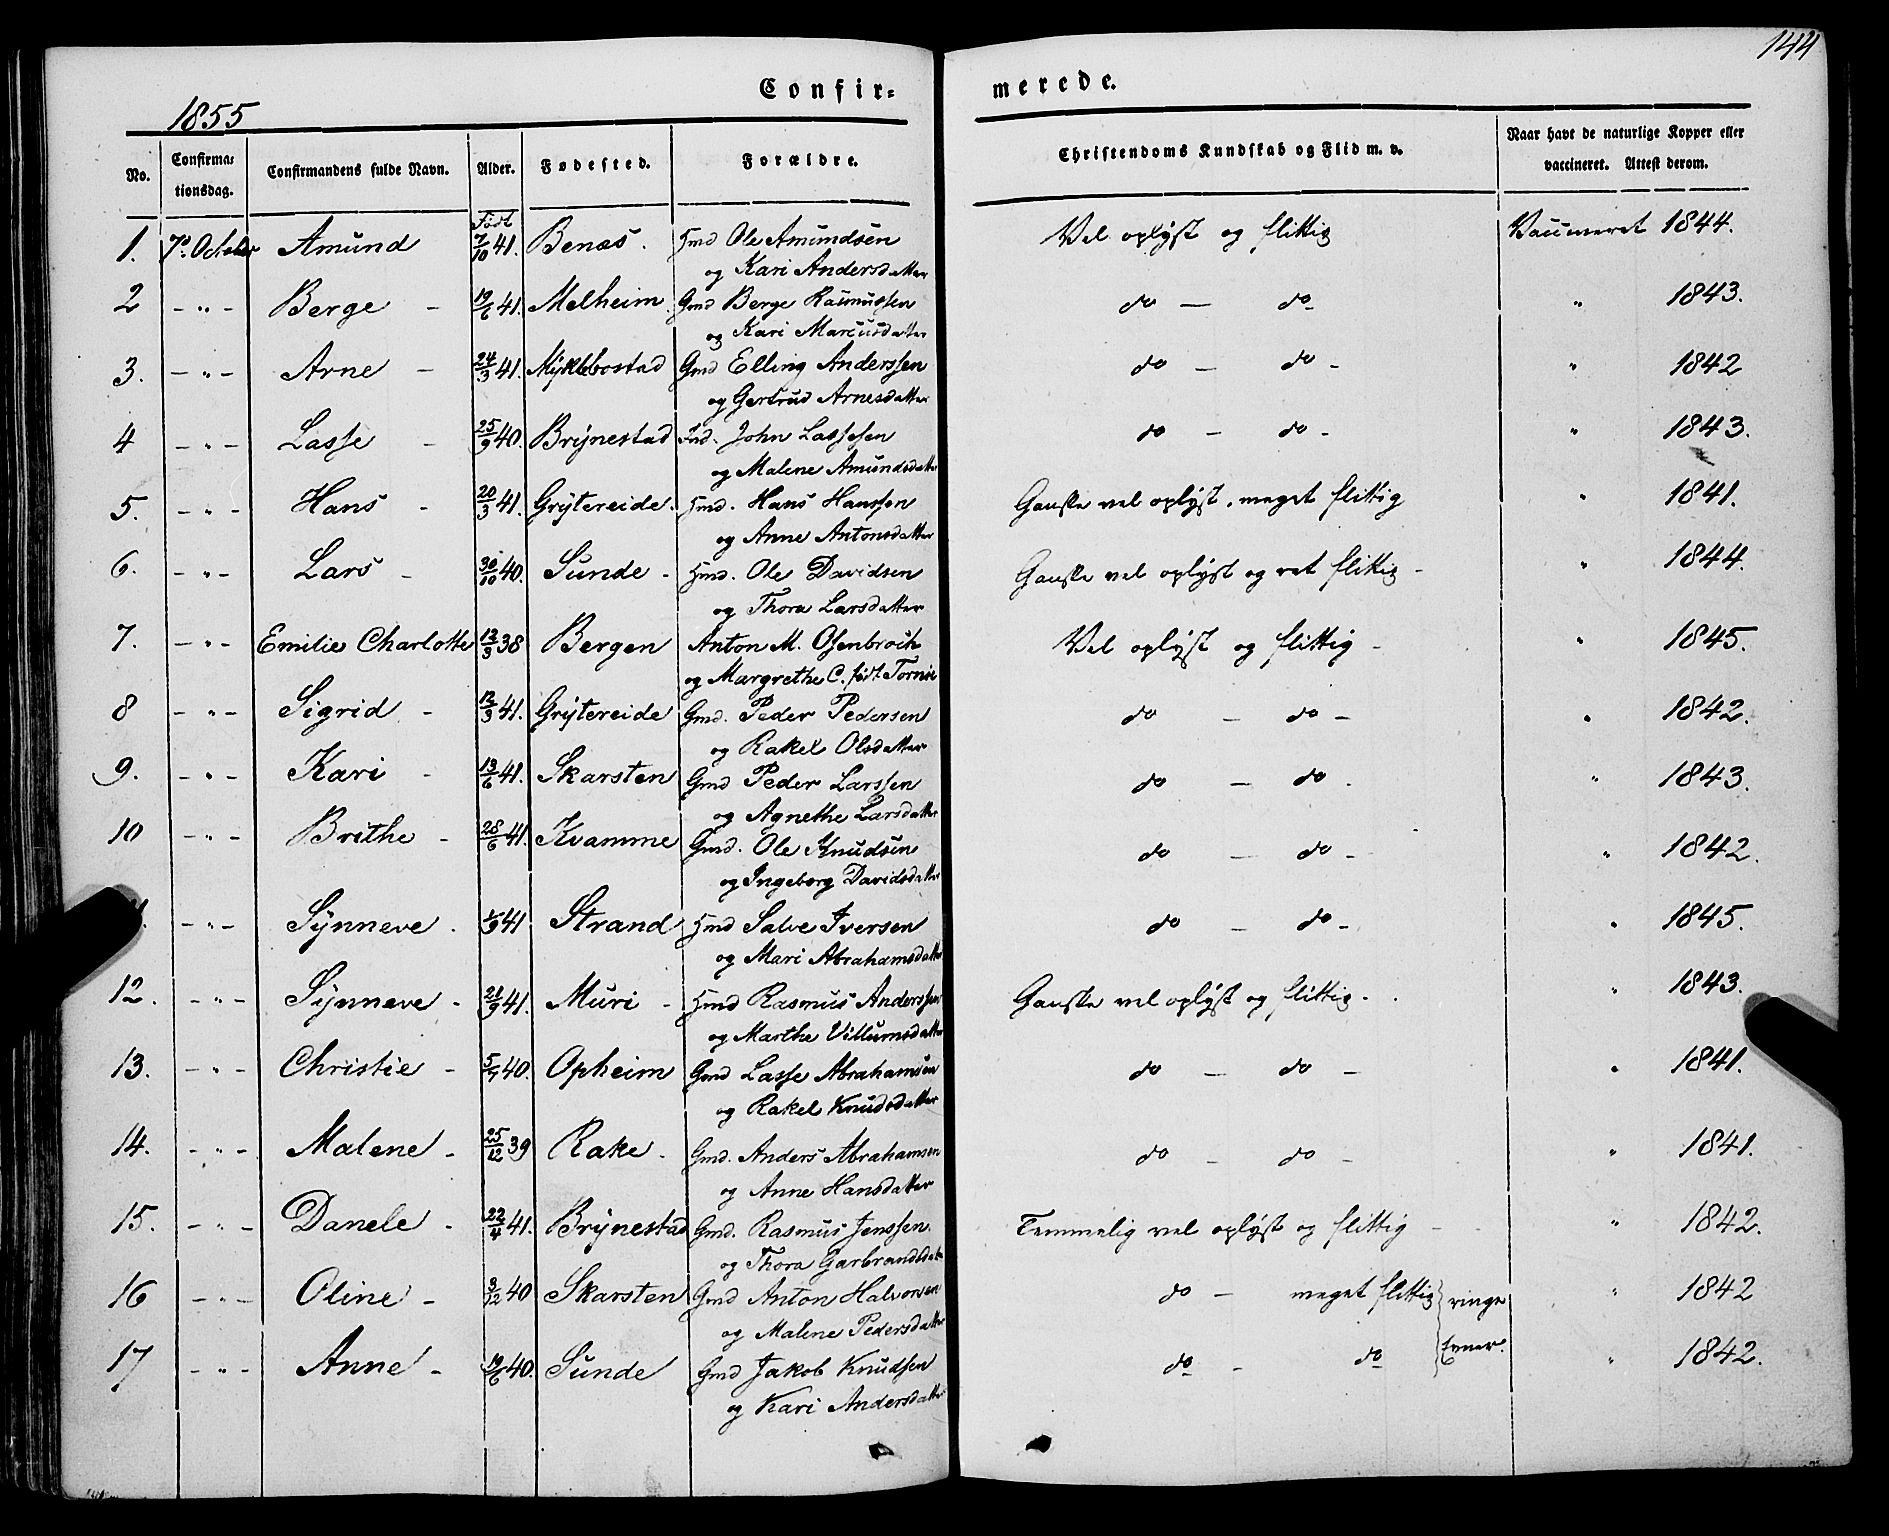 144
Confir- merede.
1855
No. Confirmationsdag. Confirmandens fulde Navn. Alder. Fødested. Forældre. Christendoms Kundskab og Flid m. v. Naar havt de naturlige Kopper eller vaccineret. Attest derom.
1. 7de October Amund Født 7/10 41. Benæs. Hmd Ole Amundsen Vel oplyst og flittig Vaccineret 1844.
og Kari Andersdatter
2 - " - Berge - 19/6 41. Melheim. Gmd Berge Rasmussen do - do " 1843.
og Kari Marcusdatter
3. - " - Arne - 24/3 41. Myklebostad Gmd Elling Anderssen do - do - " 1842
og Gertrud Arnesdatter
4 - " - Lasse - 25/9 40. Brynestad Ind. John Lassesen do - do - " 1843.
og Malene Amundsdatter
5. - " - Hans - 20/3 41. Grytereide. Hmd. Hans Hanssen Ganske vel oplyst, meget flittig " 1841.
og Anne Antonsdatter
6. - " - Lars - 30/10 40. Sunde - Hmd. Ole Davidsen Ganske vel oplyst og ret flittig - " 1844.
og Thora Larsdatter
7. - " - Emilie Charlotte 12/3 38 Bergen Anton M. Osenbroch Vel oplyst og flittig - " 1845.
og Margrethe C. født Tornøe
8 - " - Sigrid - 12/3 41. Grytereide Gmd. Peder Pedersen do - do - " 1842.
og Rakel Olsdatter
9. - " - Kari - 13/6 41. Skarsten Gmd Peder Larssen do - do. " 1843.
og Agnethe Larsdatter
10 - " - Brithe - 28/6 41. Kvamme Gmd. Ole Knudsen do - do - " 1842.
og Ingeborg Davidsdatter
- " - Synneve. 41 Strand Hmd Salve Iversen do - do - " 1845.
og Mari Abrahamsdatter
12. - " - Synneve - 21/9 41. Muri - Hmd Rasmus Anderssen Ganske vel oplyst og flittig - " 1843.
og Marthe Villumsdatter
13. - " - Christie - 5/7 40. Opheim Gmd Lasse Abrahamsen do - do - " 1841.
og Rakel Knudsdatter
14. - " - Malene - 25/12 39 Rake - Gmd. Anders Abrahamsen do - do - " 1841.
og Anne Hansdatter
15. - " - Danele - 22/4 41. Brynestad Gmd. Rasmus Jenssen Temmelig vel oplyst og flittig - " 1842.
og Thora Garbrandsdatter
16 - " - Oline - 3/12 40 Skarsten Gmd Anton Halvorsen do - meget flittig } ringe " 1842
og Malene Pedersdatter
17 - " - Anne - 19/6 40. Sunde Gmd Jakob Knudsen do - do } Evner. " 1842.
og Kari Andersdatter